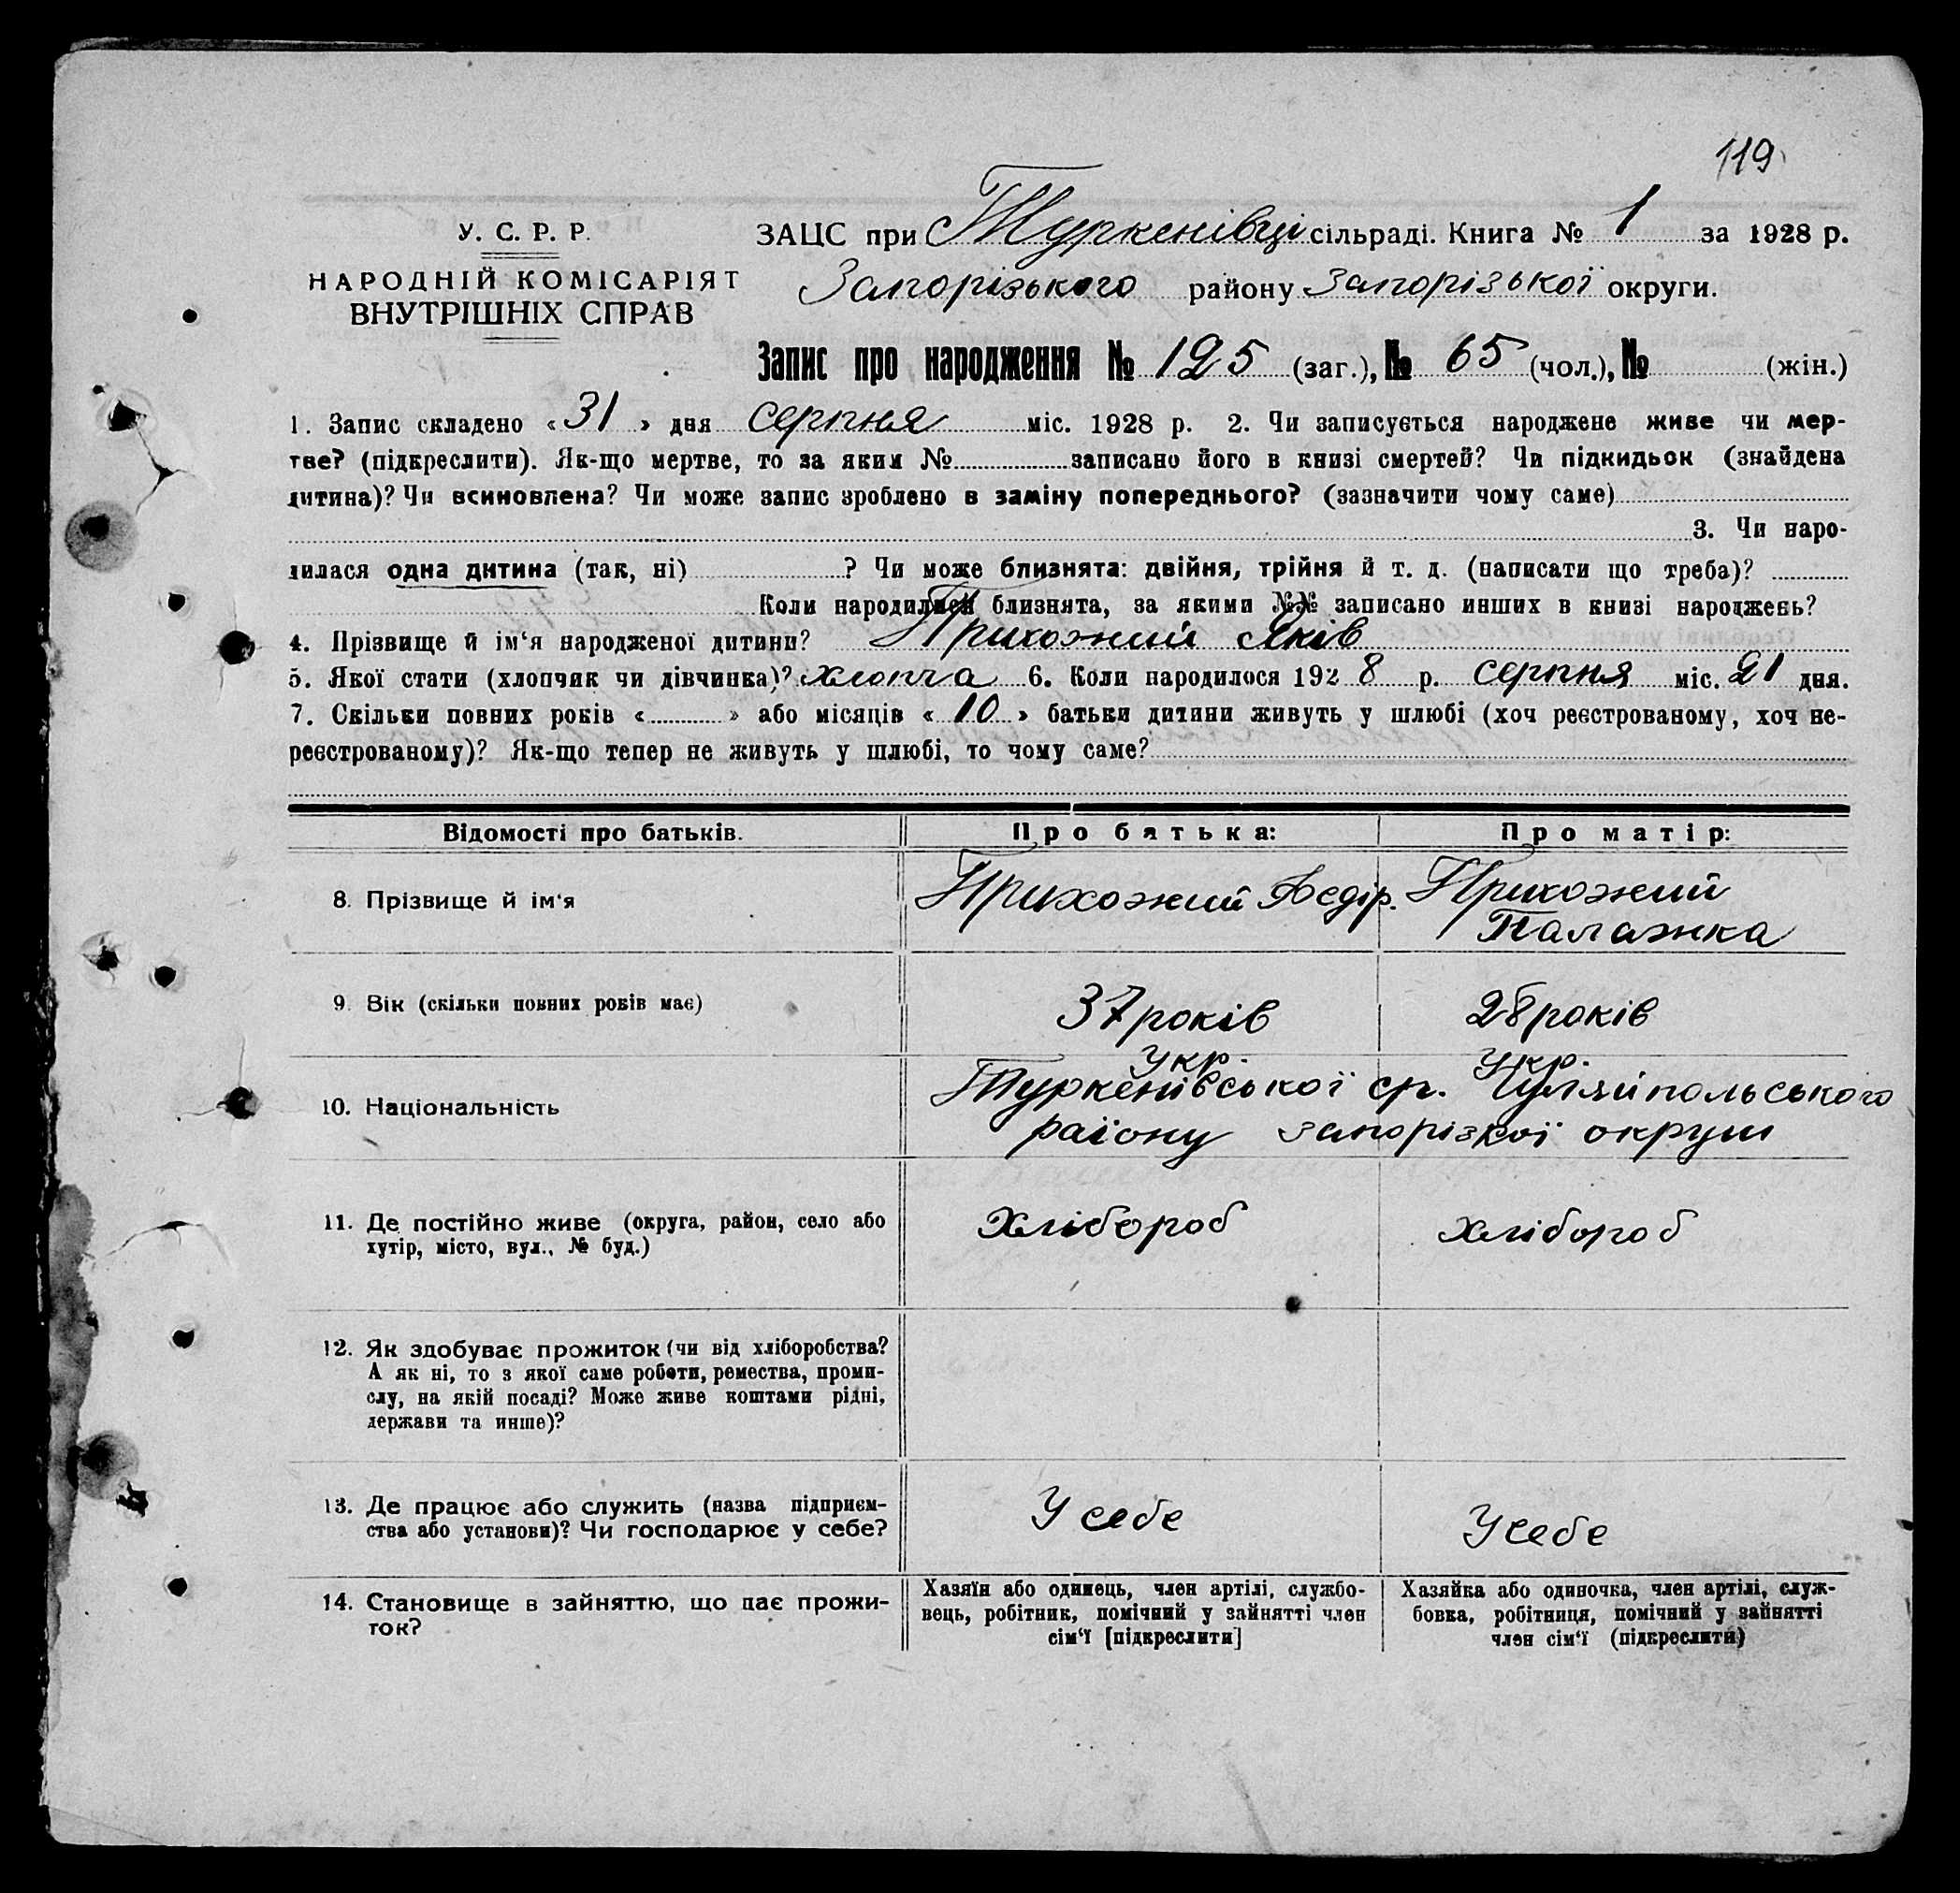 119
У. С. Р. Р.
НАРОДНІЙ КОМІСАРІЯТ
ВНУТРІШНІХ СПРАВ
ЗАЦС при Туркенівці сільраді. Книга № 1 за 1928 р.
Запорізького району Запорізької округи.
Запис про народження № 125 (заг.), № 65 (чол.), № (жін.)
1. Запис складено «31» дня серпня міс. 1928 р. 2. Чи записується народжене живе чи мер-
тве? (підкреслити). Як-що мертве, то за яким № записано його в книзі смертей? Чи підкидьок (знайдена
дитина)? Чи всиновлена? Чи може запис зроблено в заміну попереднього? (зазначити чому саме)
3. Чи наро-
дилася одна дитина (так, ні) ? Чи може близнята: двійня, трійня й т. д. (написати що треба)?
Коли народилися близнята, за якими №№ записано инших в книзі народжень?
4. Прізвище й ім'я народженої дитини? Прихожий Яків
5. Якої стати (хлопчик чи дівчинка)? хлопча 6. Коли народилося 1928 р. серпня міс. 21 дня.
7. Скільки повних років « » або місяців «10» батьки дитини живуть у шлюбі (хоч реєстрованому, хоч не-
реєстрованому)? Як-що тепер не живуть у шлюбі, то чому саме?
Відомості про батьків. Про батька: Про матір:
8. Прізвище й ім'я Прихожий Федір. Прихожий
Палажка
9. Вік (скільки повних років має) 37 років 28 років
Укр. Укр.
10. Національність Туркенівської ср. Гуляйпольського
району запорізкої округи
11. Де постійно живе (округа, район, село або
хутір, місто, вул., № буд.) Хлібороб хлібороб
12. Як здобуває прожиток (чи від хліборобства?
А як ні, то з якої саме роботи, ремества, проми-
слу, на якій посаді? Може живе коштами рідні,
держави та инше)?
13. Де працює або служить (назва підприєм-
ства або установи)? Чи господарює у себе? У себе У себе
14. Становище в зайняттю, що дає прожи-
ток? Хазяїн або одинець, член артілі, службо-
вець, робітник, помічний у зайнятті член
сім'ї [підкреслити] Хазяйка або одиночка, член артілі, служ-
бовка, робітниця, помічний у зайнятті
член сім'ї (підкреслити)